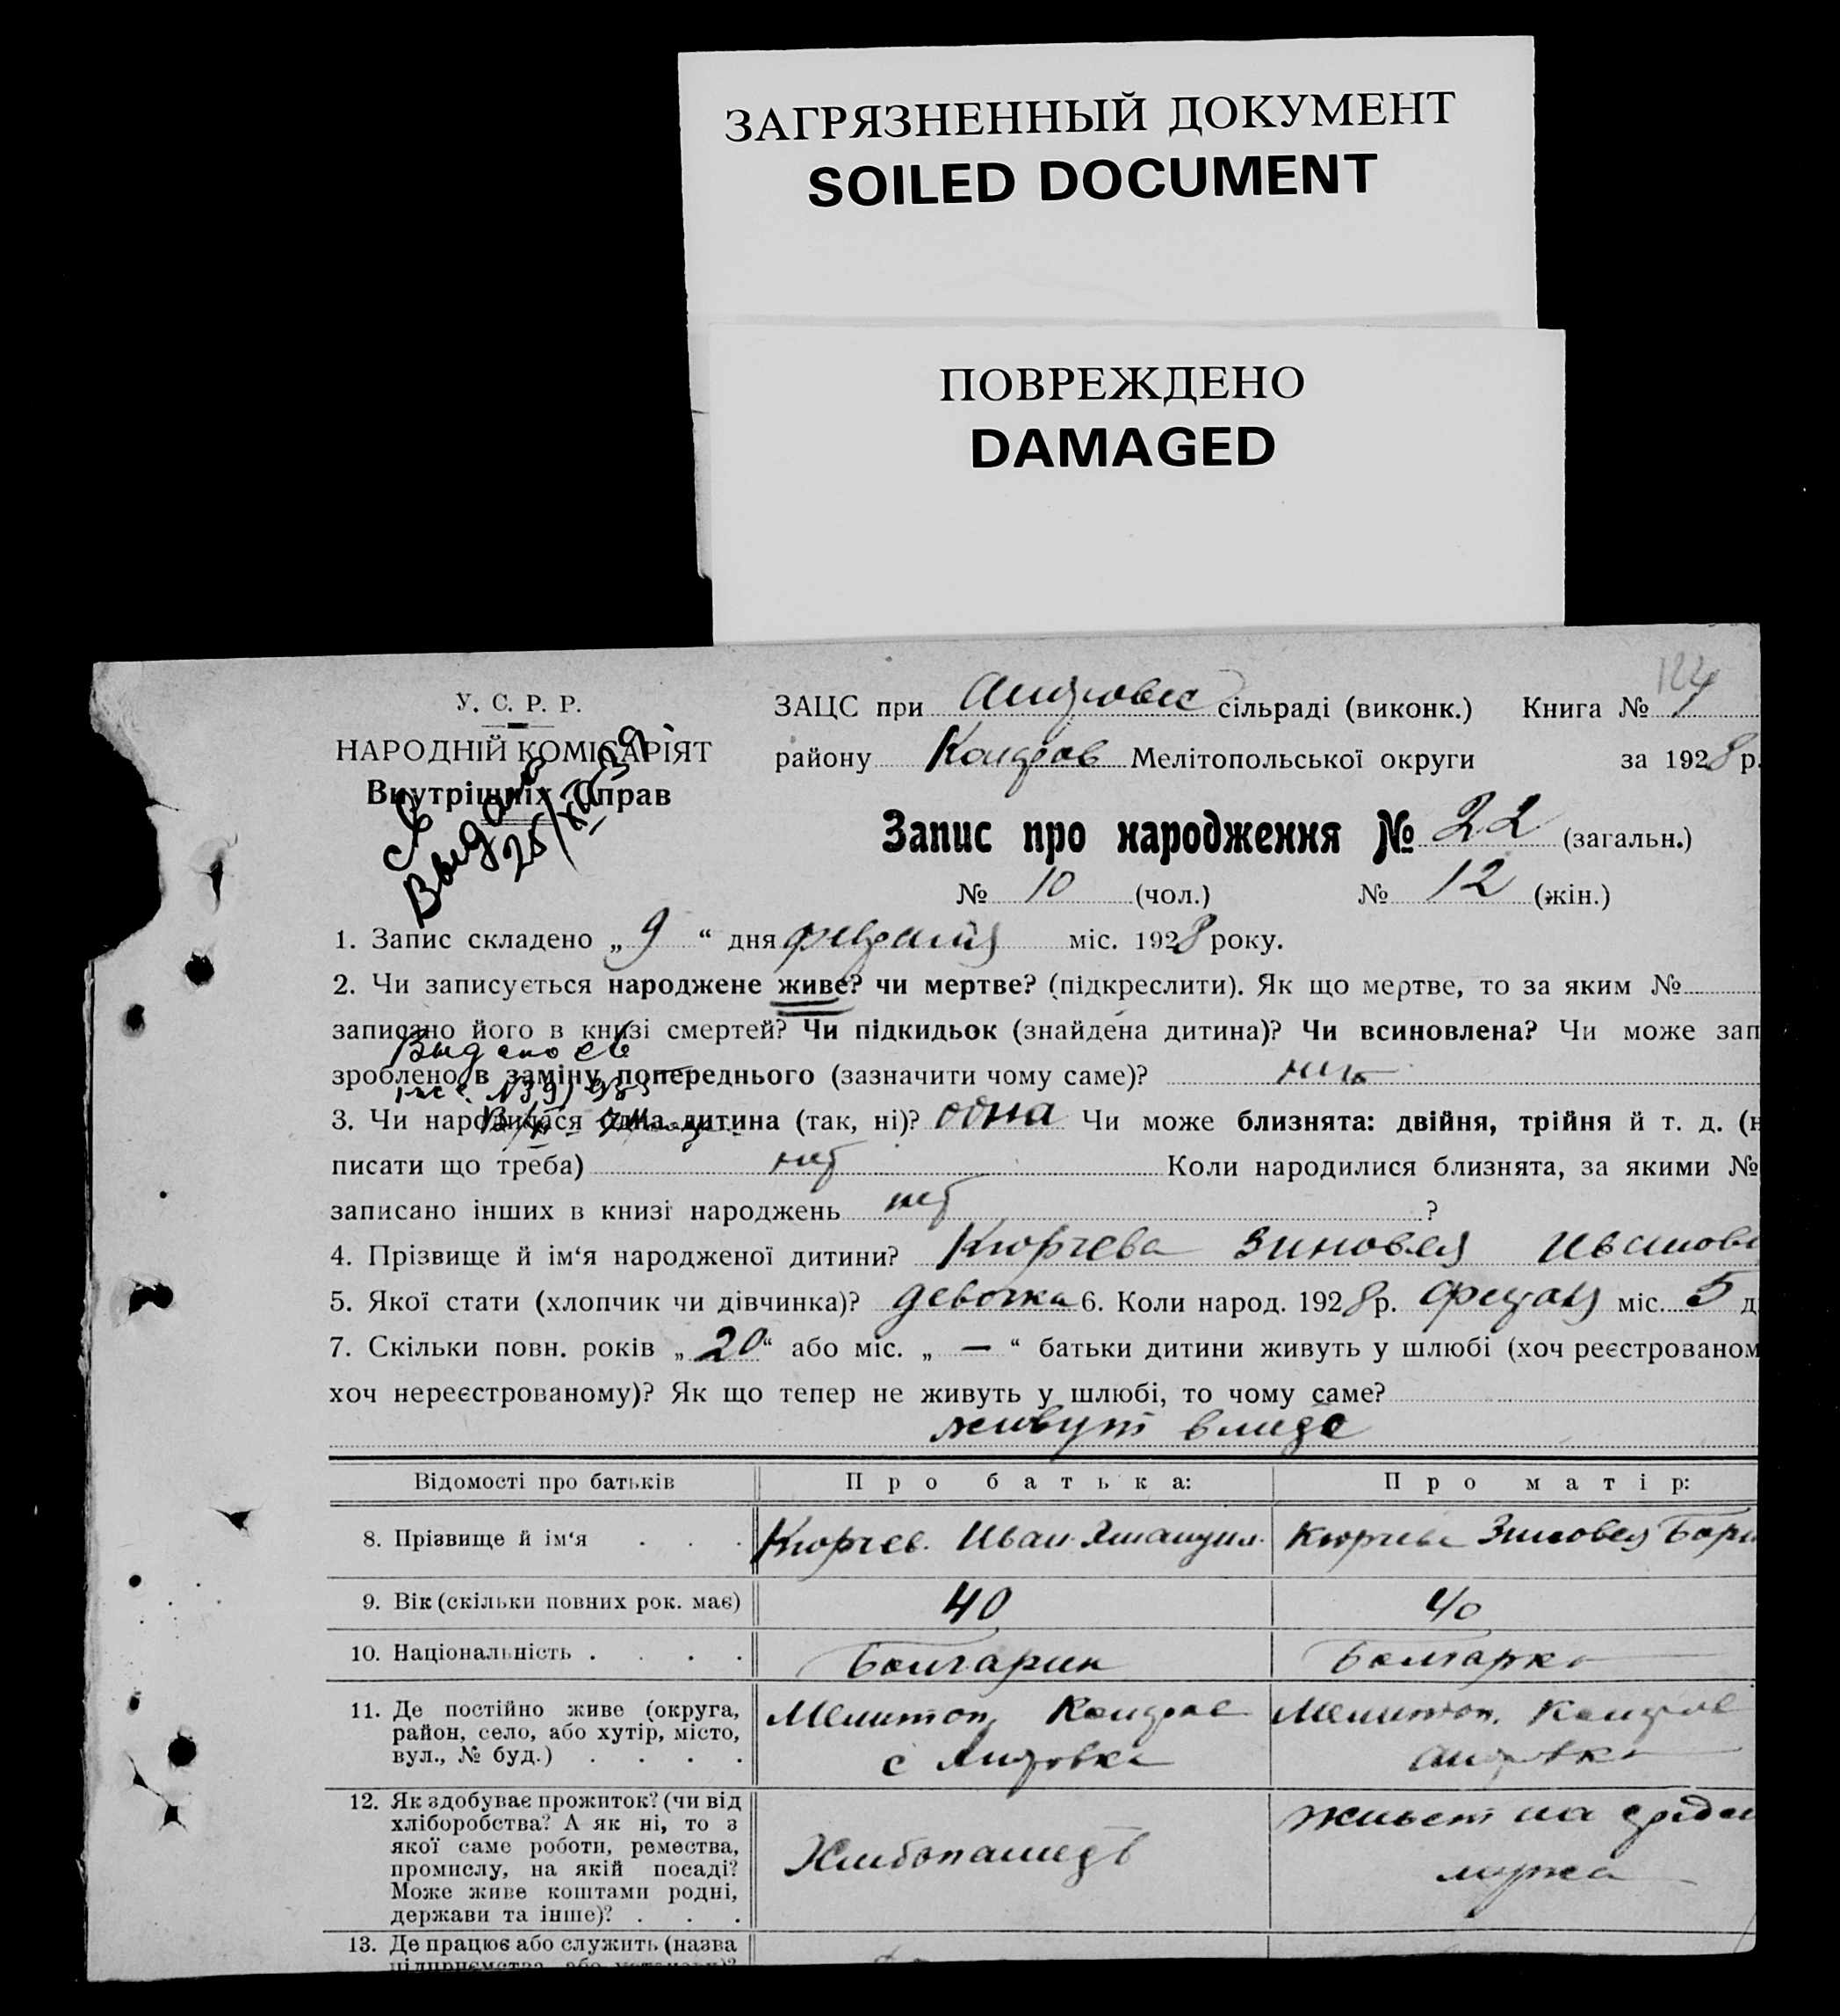 ЗАГРЯЗНЕННЫЙ ДОКУМЕНТ
SOILED DOCUMENT
ПОВРЕЖДЕНО
DAMAGED
У. С. Р. Р.
НАРОДНІЙ КОМІСАРІЯТ
Внутрішніх Справ
Св
Выдано
25/XII 39
ЗАЦС при сільраді (виконк.) Книга №
району Мелітопольської округи за 1928 р.
Запис про народження № 22 (загальн.)
№ 10 (чол.) № 12 (жін.)
1. Запис складено „ 9 “ дня февраля міс. 1928 року.
2. Чи записується народжене живе? чи мертве? (підкреслити). Як що мертве, то за яким №
записано його в книзі смертей? Чи підкидьок (знайдена дитина)? Чи всиновлена? Чи може зап
Выдано св
зроблено в заміну попереднього (зазначити чому саме)?
3. Чи народилася одна дитина (так, ні)? одна Чи може близнята: двійня, трійня й т. д. (н
писати що треба) нет Коли народилися близнята, за якими №
записано інших в книзі народжень нет ?
4. Прізвище й ім‘я народженої дитини? Кюрчева Зиновея Иванов
5. Якої стати (хлопчик чи дівчинка)? девочка 6. Коли народ. 1928 р. міс. 5 д
7. Скільки повн. років „ 20 “ або міс. „ — “ батьки дитини живуть у шлюбі (хоч реєстрованом
хоч нереєстрованому)? Як що тепер не живуть у шлюбі, то чому саме?
живут
Відомості про батьків Про батька: Про матір:
8. Прізвище й ім‘я . . . Кюрчев Иван Кюрчева Зиновея Бори
9. Вік (скільки повних рок. має) 40 40
10. Національність . . . . Болгарин Болгарка
11. Де постійно живе (округа, район, село, або хутір, місто, вул., № буд.) . . . .
Мелитоп.
с
Мелитоп.
12. Як здобуває прожиток? (чи від хліборобства? А як ні, то з якої саме роботи, ремества, промислу, на якій посаді? Може живе коштами родні, держави та інше)? . . .
Хлебопашец
живет на
мужа
13. Де працює або служить (назва
підприємства, або установи)?